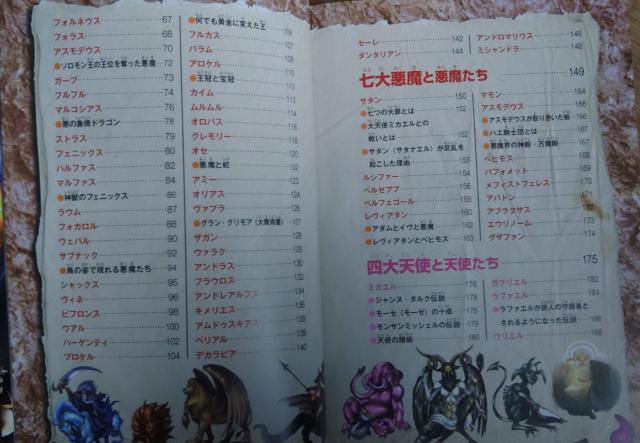 フォルネウス 67
フォラス 68
アスモデウス 70
●ソロモン王の王位を奪った悪魔 72
ガープ 73
フルフル 74
マルコシアス 76
●悪の象徴ドラゴン 78
ストラス 79
フェニックス 80
ハルファス 82
マルファス 84
●神獣のフェニックス 86
ラウム 87
フォカロル 88
ウェパル 90
サブナック 92
●鳥の姿で現れる悪魔たち 94
シャックス 95
ヴィネ 96
ビフロンス 98
ウアル 100
ハーゲンティ 102
プロケル 104
●何でも黄金に変えた王 106
フルカス
バラム
アロケル
●王冠と宝冠
カイム
ムルムル
オロバス
グレモリー
オセ
●悪魔と蛇
アミー
オリアス
ヴァプラ 126
●グラン・グリモア(大魔術書) 127
ザガン
ウァラク
アンドラス
フラウロス 132
アンドレアルフス 134
キメリエス 136
アムドゥスキアス 138
ベリアル 139
デカラビア 140
セーレ 142
ダンタリアン 144
アンドロマリウス 146
ミシャンドラ 148
七大悪魔と悪魔たち 149
サタン 150
●七つの大罪とは 152
●大天使ミカエルとの
戦いとは 152
●サタン(サタナエル)が反乱を
起こした理由 153
ルシファー 154
ベルゼブブ 156
ベルフェゴール 158
レヴィアタン 160
●アダムとイヴと悪魔 162
●レヴィアタンとベヒモス 163
マモン 164
アスモデウス 166
●アスモデウスが取り憑いた娘 166
●ハエ騎士団とは 167
●悪魔界の神殿・万魔殿 167
ベヒモス 168
バフォメット 169
メフィストフェレス 170
アバドン 171
アブラクサス 172
エウリノーム 173
グザファン 174
四大天使と天使たち 175
ミカエル 176
●ジャンヌ・ダルク伝説 178
●モーセ(モーゼ)の十戒 178
●モンサンミッシェルの伝説 179
●天使の階級 180
ガブリエル 182
ラファエル 184
●ラファエルが旅人の守護者と
されるようになった伝説 186
ウリエル 188